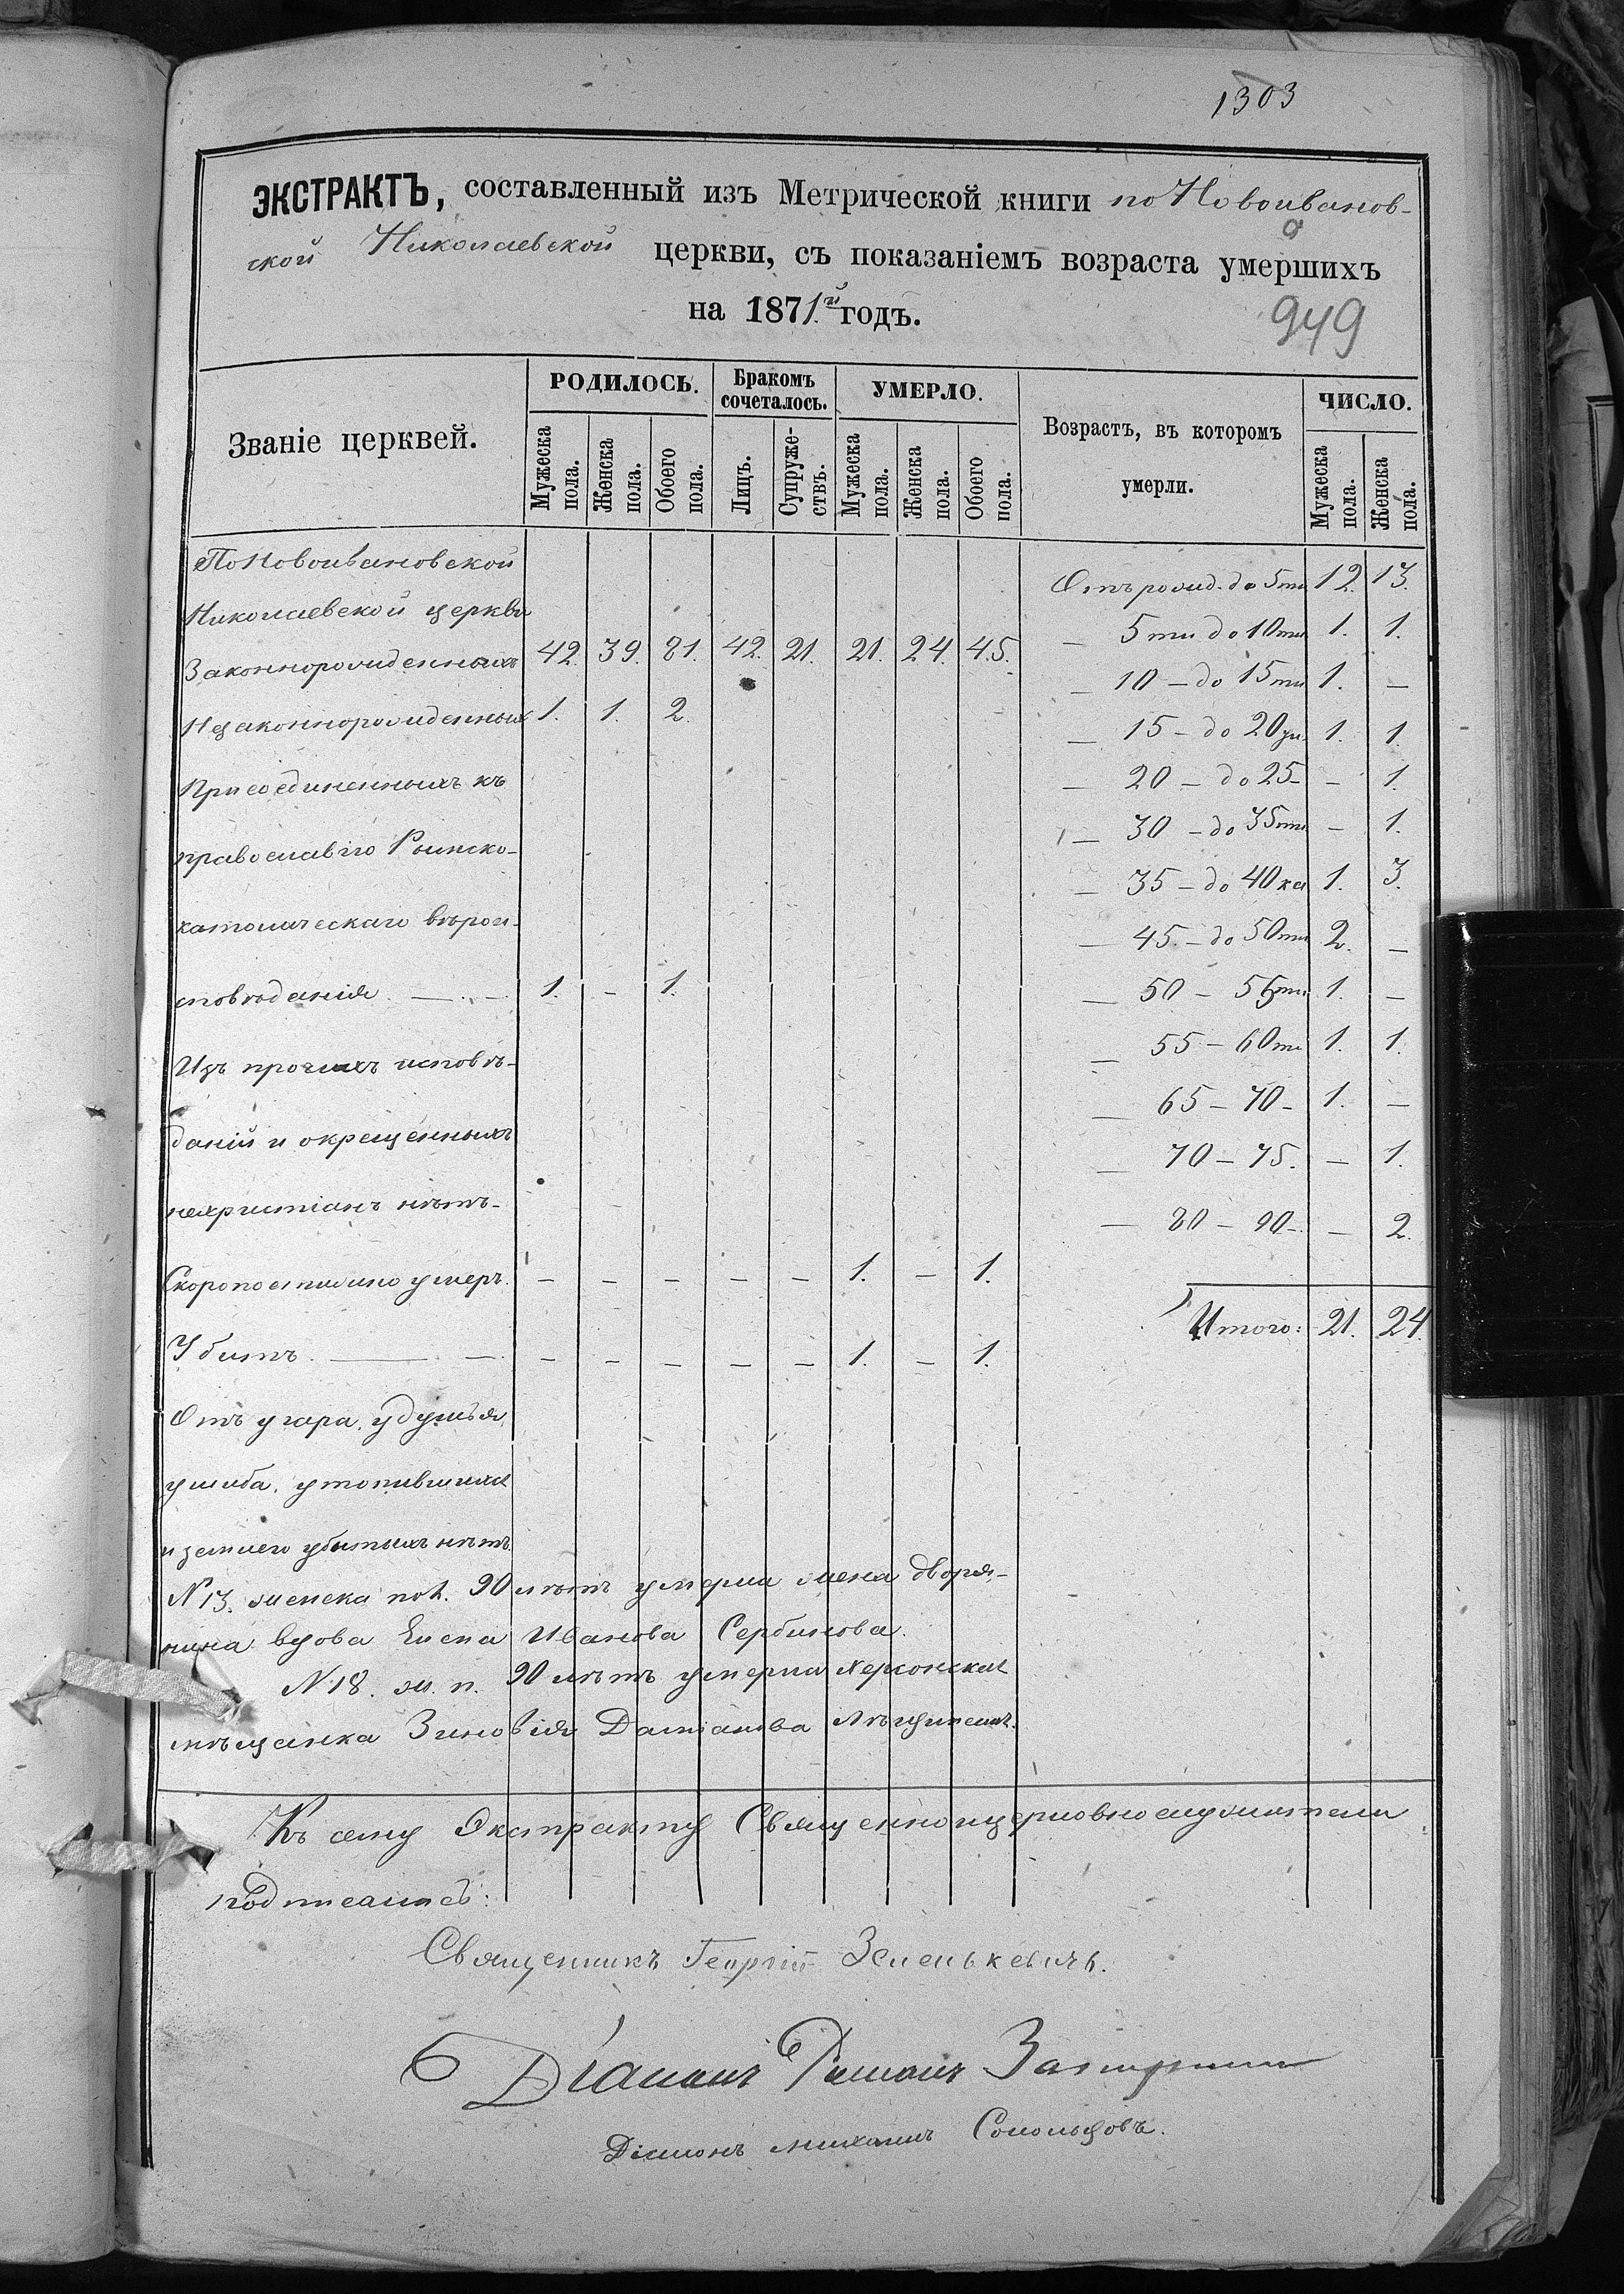 1303
ЭКСТРАКТЪ, составленный изъ Метрической книги по Новоиванов-
ской Николаевской церкви, съ показаніемъ возраста умершихъ
на 1871й годъ.
949
Званіе церквей.
РОДИЛОСЬ.
Бракомъ сочеталось.
УМЕРЛО.
Возрастъ, въ которомъ умерли.
ЧИСЛО.
Мужеска пола.
Женска пола.
Обоего пола.
Лицъ.
Супружествъ.
Мужеска пола.
Женска пола.
Обоего пола.
Мужеска пола.
Женска пола.
По Новоивановской
Николаевской церкви
Законнорожденныхъ 42. 39. 81. 42. 21. 21. 24. 45.
Незаконнорожденныхъ 1. 1. 2.
Присоединенныхъ къ
православію Римско-
католическаго вѣрои-
сповѣданія — 1. – 1.
Изъ прочихъ исповѣ-
даній и окрещенныхъ
нехристіанъ нѣтъ-
Скоропостижно умеръ. – – – – – 1. – 1.
Убитъ. — – – – – – 1. – 1.
Отъ угара, удушья,
ушиба, утопившихся
и землею убитыхъ нѣтъ.
Отъ рожд. до 5ти 12. 13.
— 5ти до 10ти 1. 1.
— 10 – до 15ти 1. —
— 15 – до 20ти 1. 1.
— 20 – до 25 – – 1.
— 30 – до 35ти – 1.
— 35 – до 40ка 1. 3.
— 45 – до 50ти 2. —
— 50 – 55ти 1. —
— 55 – 60ти 1. 1.
— 65 – 70 – 1. —
— 70 – 75. – 1.
— 80 – 90 – – 2.
Итого: 21. 24.
N 13. женска пол. 90 лѣтъ умерла жена дворя-
нина вдова Елена Иванова Сербинова.
N 18. ж. п. 90 лѣтъ умерла Херсонская
мѣщанка Зиновія Даміанова
Къ сему Экстракту Священноцерковнослужители
подписались:
Священникъ Георгій Зеленькевичъ.
Діаконъ Романъ
Діаконъ Михаилъ